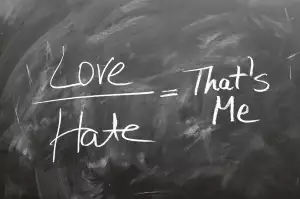 Love
Hate
= That's
Me